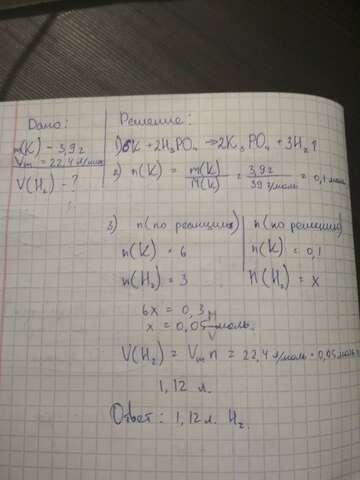 Дано:
m(K) - 3,9г
Vm = 22,4 л/моль
V(H₂) - ?
Решение:
1) 6K + 2H₃PO₄ → 2K₃PO₄ + 3H₂↑
2) n(K) = m(K)/M(K) = 3,9г/39 г/моль = 0,1 моль
3) n(по реакции)
n(K) = 6
n(H₂) = 3
n(по решению)
n(K) = 0,1
n(H₂) = x
6x = 0,3
x = 0,05 моль.
V(H₂) = Vm n = 22,4 г/моль · 0,05 моль
1,12 л.
Ответ: 1,12 л. H₂.